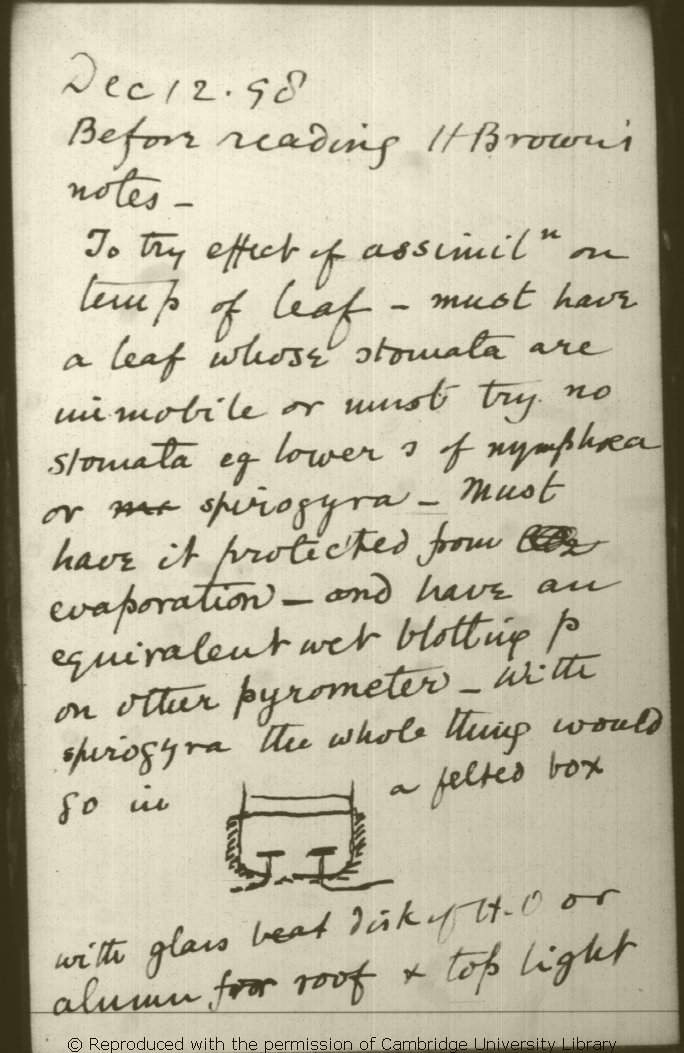 Dec 12. 98
Before reading H Brown's
notes –
To try effect of assimilⁿ on
temp of leaf – must have
a leaf whose stomata are
immobile or must try no
stomata eg lower s of nymphæa
or spirogyra – Must
have it protected from
evaporation – and have an
equivalent wet blotting p
on other pyrometer – With
spirogyra the whole thing would
go in a felted box
with glass disk of H₂O or
alumn for roof & top light
© Reproduced with the permission of Cambridge University Library